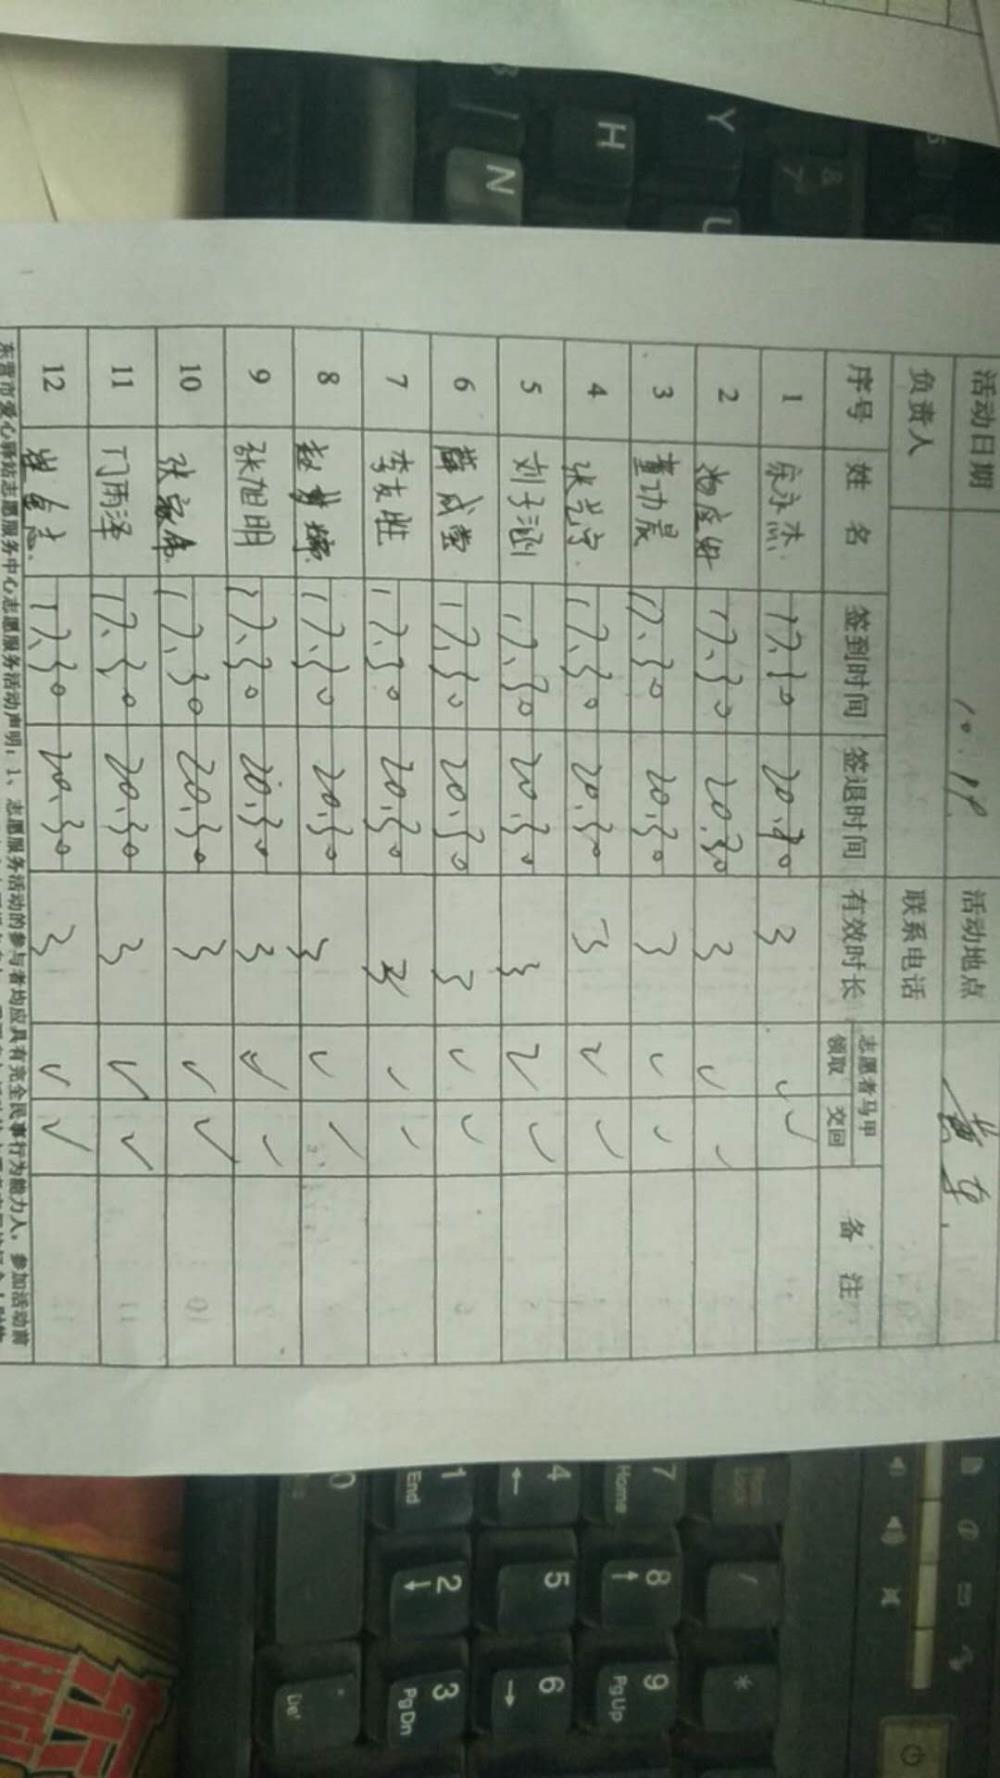 活动日期 10.19 活动地点
负责人 联系电话
序号 姓名 签到时间 签退时间 有效时长 志愿者马甲 领取 交回 备注
1 宗永杰 17.30 20.30 3 ✓ ✓
2 17.30 20.30 3 ✓ ✓
3 董功晨 17.30 20.30 3 ✓ ✓
4 张芳宁 17.30 20.30 3 ✓ ✓
5 刘子涵 17.30 20.30 3 ✓ ✓
6 薛成莹 17.30 20.30 3 ✓ ✓
7 李友胜 17.30 20.30 3 ✓ ✓
8 赵梦辉 17.30 20.30 3 ✓ ✓
9 张旭明 17.30 20.30 3 ✓ ✓
10 张家 17.30 20.30 3 ✓ ✓
11 门雨泽 17.30 20.30 3 ✓ ✓
12 17.30 20.30 3 ✓ ✓
东营市爱心驿站志愿服务中心志愿服务活动声明：1、志愿服务活动的参与者均应具有完全民事行为能力人。参加活动前
Y
H
N
U
7 Home
8
9 PgUp
4
5
6
1 End
2
3 PgDn
0
Del
/
*